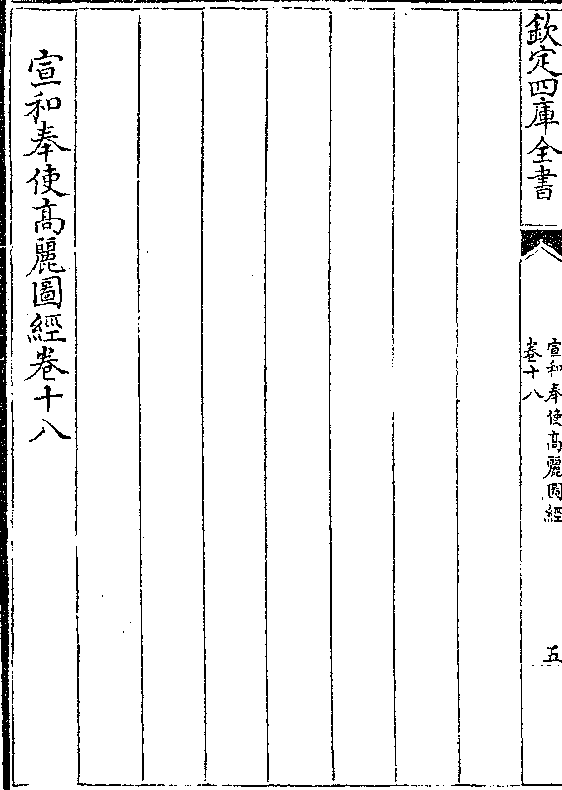 欽定四庫全書
宣和奉使高麗圖經
卷十八
五
宣和奉使高麗圖經卷十八